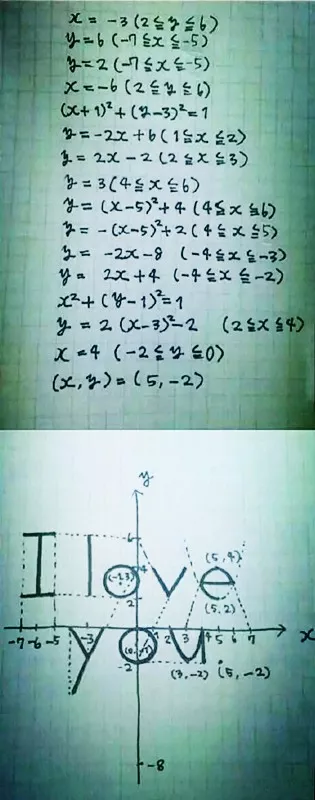 x = -3 (2 ≦ y ≦ 6)
y = 6 (-7 ≦ x ≦ -5)
y = 2 (-7 ≦ x ≦ -5)
x = -6 (2 ≦ y ≦ 6)
(x+1)² + (y-3)² = 1
y = -2x + 6 (1 ≦ x ≦ 2)
y = 2x - 2 (2 ≦ x ≦ 3)
y = 3 (4 ≦ x ≦ 6)
y = (x-5)² + 4 (4 ≦ x ≦ 6)
y = -(x-5)² + 2 (4 ≦ x ≦ 5)
y = -2x - 8 (-4 ≦ x ≦ -3)
y = 2x + 4 (-4 ≦ x ≦ -2)
x² + (y-1)² = 1
y = 2 (x-3)² - 2 (2 ≦ x ≦ 4)
x = 4 (-2 ≦ y ≦ 0)
(x, y) = (5, -2)
y
6
(5, 4)
4
I love
(-1,3)
2
(5, 2)
-7 -6 -5 -3 2 3 4 5 6 7 x
you
-2
(3, -2) (5, -2)
-8